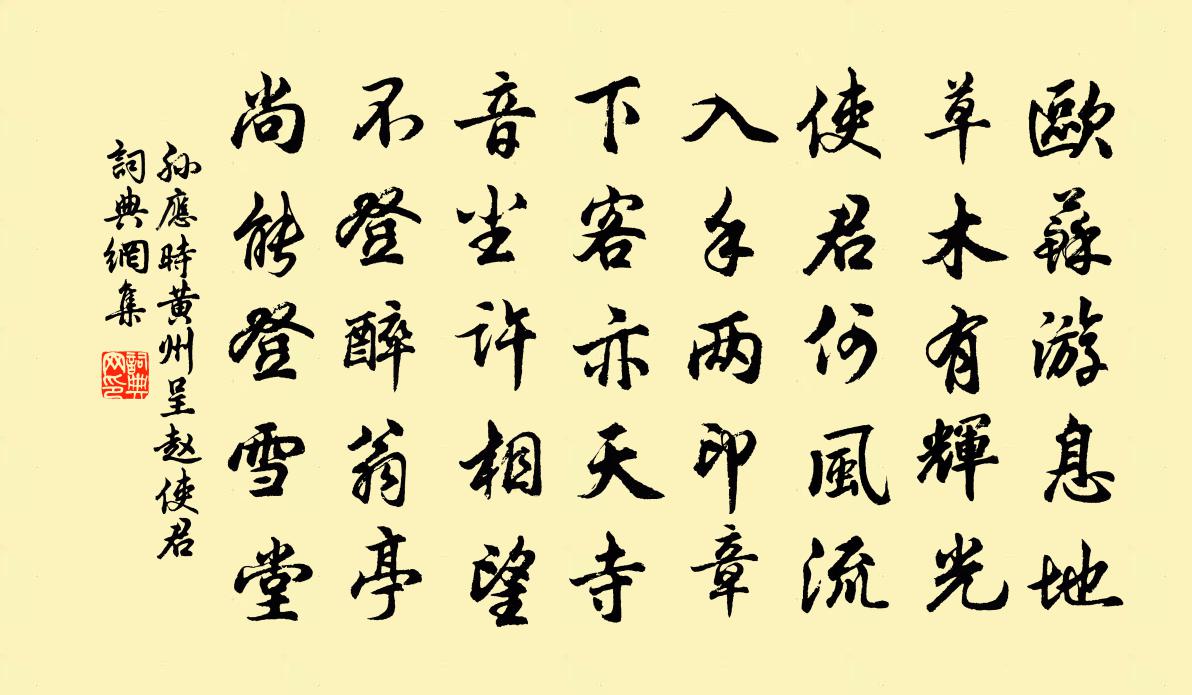 歐蘇游息地
草木有輝光
使君何風流
入手两印章
下客亦天寺
音尘許相望
不登醉翁亭
尚能登雪堂
孙應時黄州呈赵使君
詞典網集
詞典网印